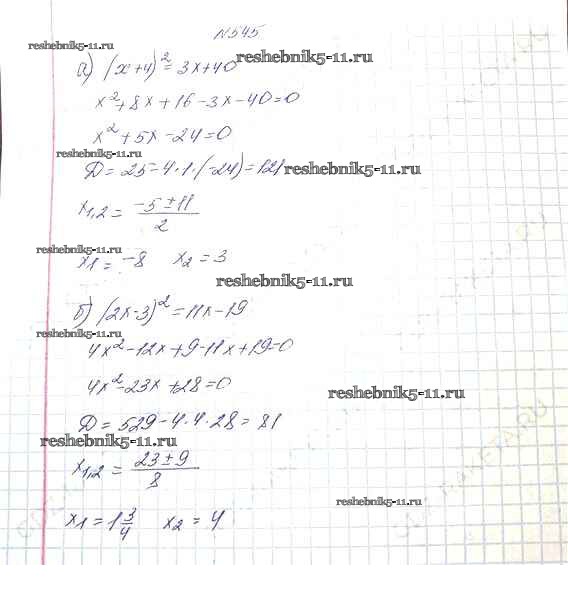 №545
reshebnik5-11.ru
а) (x+4)² = 3x+40 reshebnik5-11.ru
x²+8x+16-3x-40=0
x²+5x-24=0
reshebnik5-11.ru
Д=25-4·1·(-24)=121 reshebnik5-11.ru
x1,2 = (-5±11)/2
reshebnik5-11.ru
x1 = -8 x2 = 3
reshebnik5-11.ru
б) (2x-3)²=11x-19
reshebnik5-11.ru
4x²-12x+9-11x+19=0
4x²-23x+28=0
reshebnik5-11.ru
Д=529-4·4·28=81
reshebnik5-11.ru
x1,2 = (23±9)/8
reshebnik5-11.ru
x1 = 1 3/4 x2 = 4